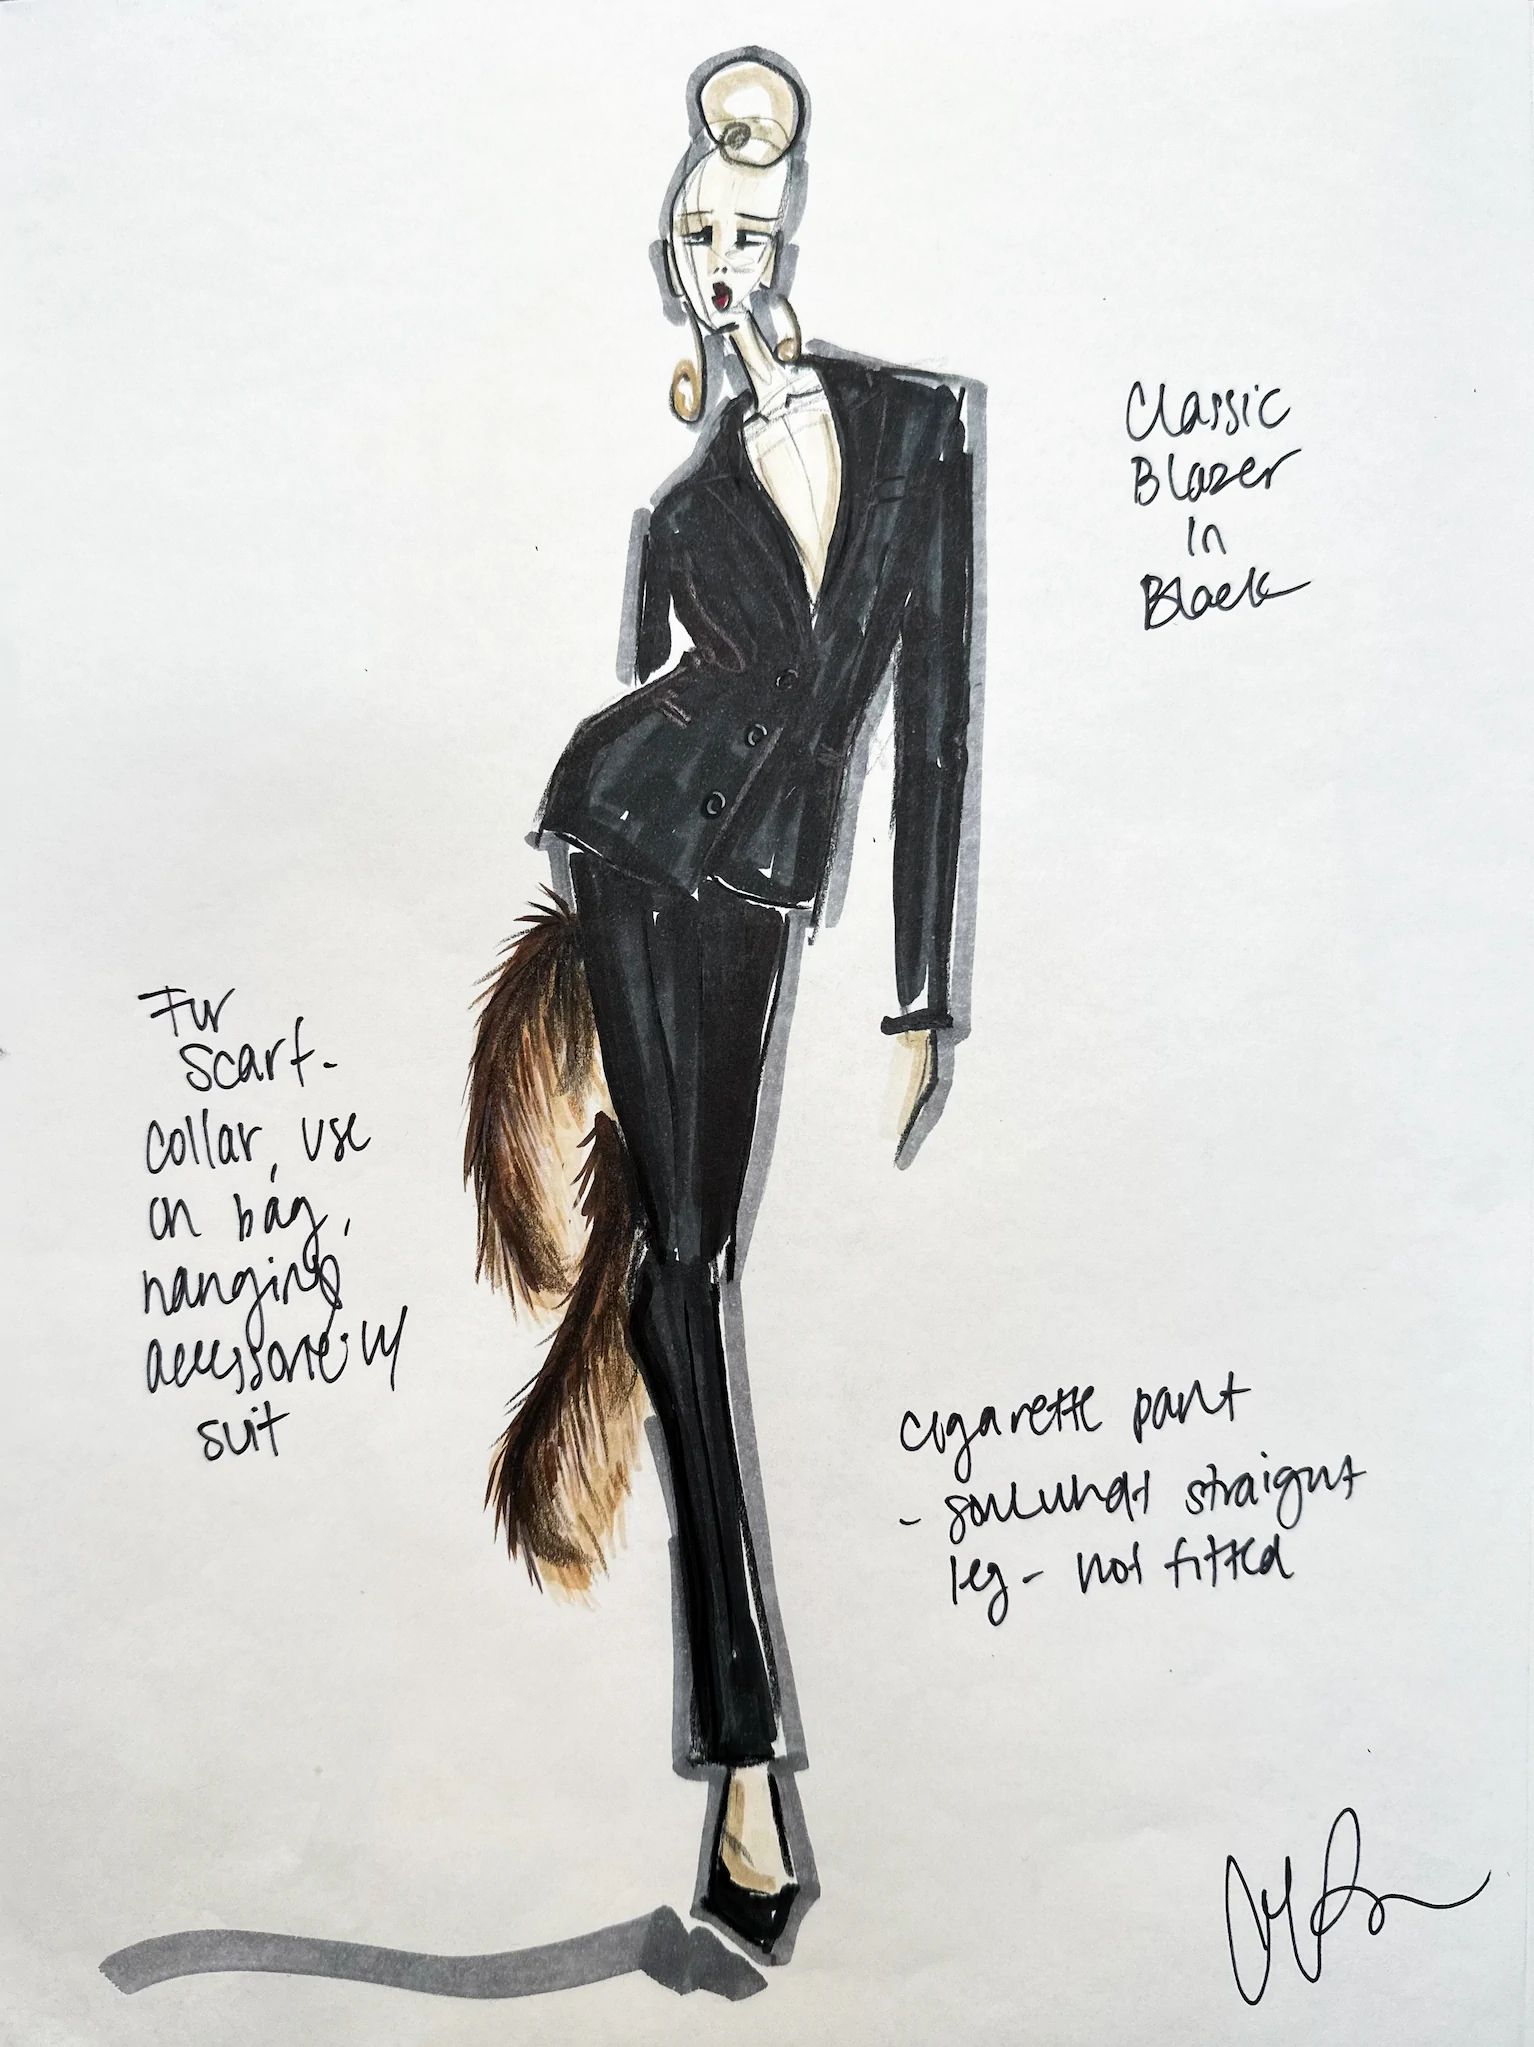 Classic
Blazer
in
Black
Fur
scarf-
collar, use
on bag,
hanging
accessorie w/
suit
cigarette pant
- somewhat straight
leg - not fitted